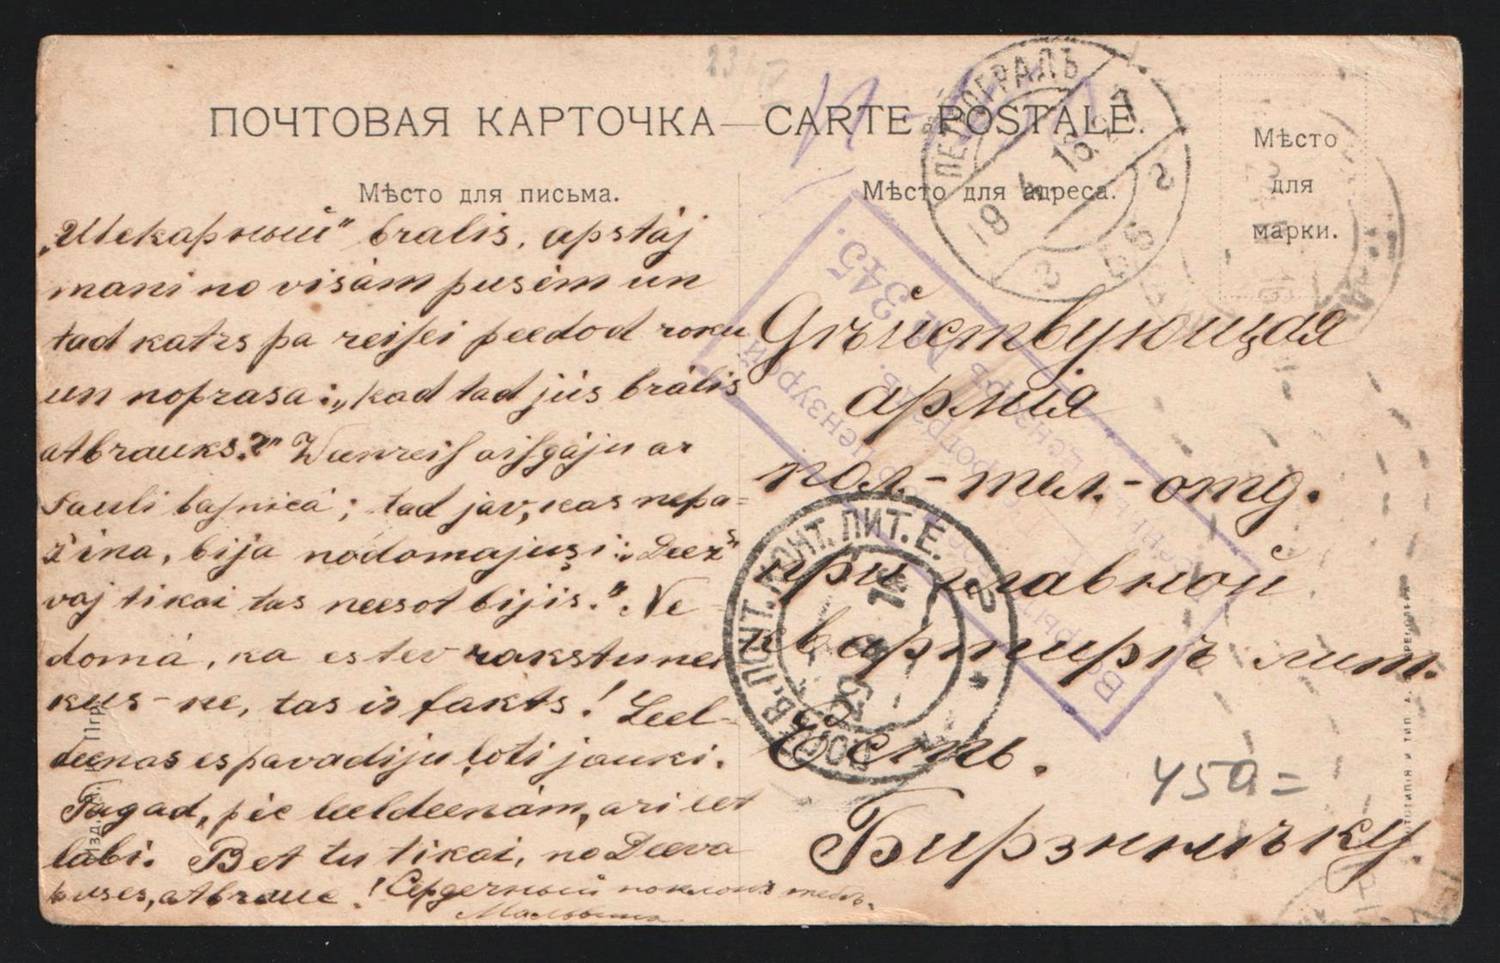 ПОЧТОВАЯ КАРТОЧКА — CARTE POSTALE.
Мѣсто для письма.
Мѣсто для адреса.
Мѣсто
для
марки.
„Шикарный“ bralis, apstāj
mani no visām pusēm un
tad katrs pa reisei peedod roku
un noprasa: „kad tad jūs brālis
atbrauks?“ Weenreis aisgāju ar
Pauli basnicā; tad jav, kas nepa=
zina, bija nodomajuši: „Deez“
vaj tikai tas neesot bijis.“ Ne
domā, ka es tev rakstu nei
kus-ne, tas ir fakts! Leel-
deenas es pavadiju ļoti jauki.
Tagad, pēc leeldeenām, ari eet
labi. Bet tu tikai, no Deeva
puses, atbrauc! Сердечный поклонъ тебѣ.
Дѣйствующая
армія
пол.-тел.-отд.
при главной
квартирѣ лит.
Есть.
Бирзничьку.
ПЕТРОГРАДЪ
19 4 16
ПОЧТ. КОНТ. ЛИТ. Е.
№ 345.
45а=